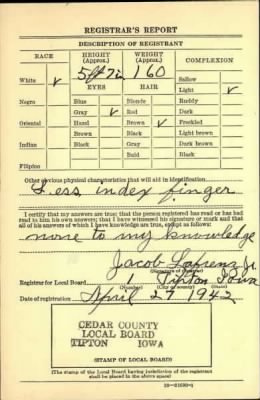 REGISTRAR'S REPORT
DESCRIPTION OF REGISTRANT
RACE HEIGHT (Approx.) WEIGHT (Approx.) COMPLEXION
5ft 7in 160 Sallow
White ✓ EYES HAIR Light ✓
Negro Blue Blonde Ruddy
Gray ✓ Red Dark
Oriental Hazel Brown ✓ Freckled
Brown Black Light brown
Indian Black Gray Dark brown
Bald Black
Filipino
Other obvious physical characteristics that will aid in identification
index finger
I certify that my answers are true; that the person registered has read or has had
read to him his own answers; that I have witnessed his signature or mark and that
all of his answers of which I have knowledge are true, except as follows:
none to my knowledge
Jacob Lafrenz Jr.
(Signature of registrar)
Registrar for Local Board 1 Tipton Iowa
(Number) (City or county) (State)
Date of registration April 27 1942
CEDAR COUNTY
LOCAL BOARD
TIPTON IOWA
(STAMP OF LOCAL BOARD)
(The stamp of the Local Board having jurisdiction of the registrant
shall be placed in the above space)